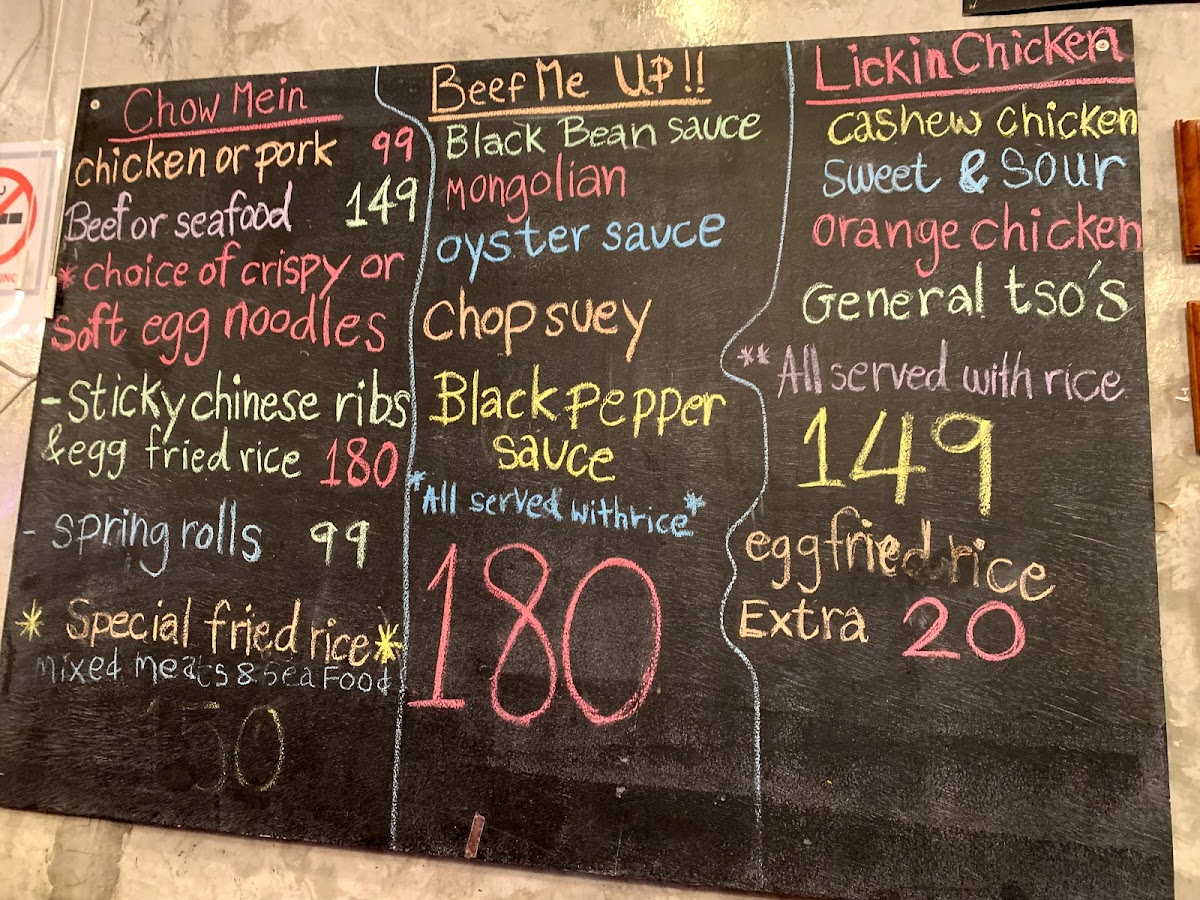 Chow Mein
chicken or pork 99
Beef or seafood 149
*choice of crispy or
Soft egg noodles
-Sticky chinese ribs
&egg fried rice 180
- Spring rolls 99
* Special fried rice*
mixed meats & Sea Food
150
Beef Me UP!!
Black Bean sauce
Mongolian
oyster sauce
Chop suey
Black Pepper
sauce
*All served with rice*
180
Lickin Chicken
cashew chicken
Sweet & Sour
orange chicken
General tso's
**All served with rice
149
egg fried rice
Extra 20